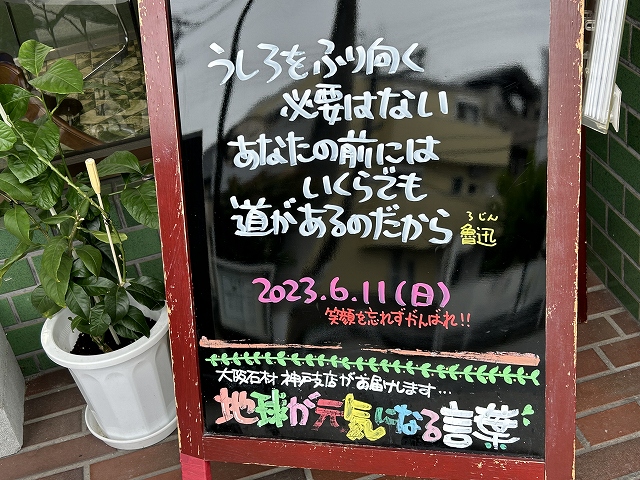 うしろをふり向く
必要はない
あなたの前には
いくらでも
道があるのだから
ろじん
魯迅
2023.6.11(日)
笑顔を忘れずがんばれ!!
大阪石材 神戸支店がお届けします…
地球が元気になる言葉